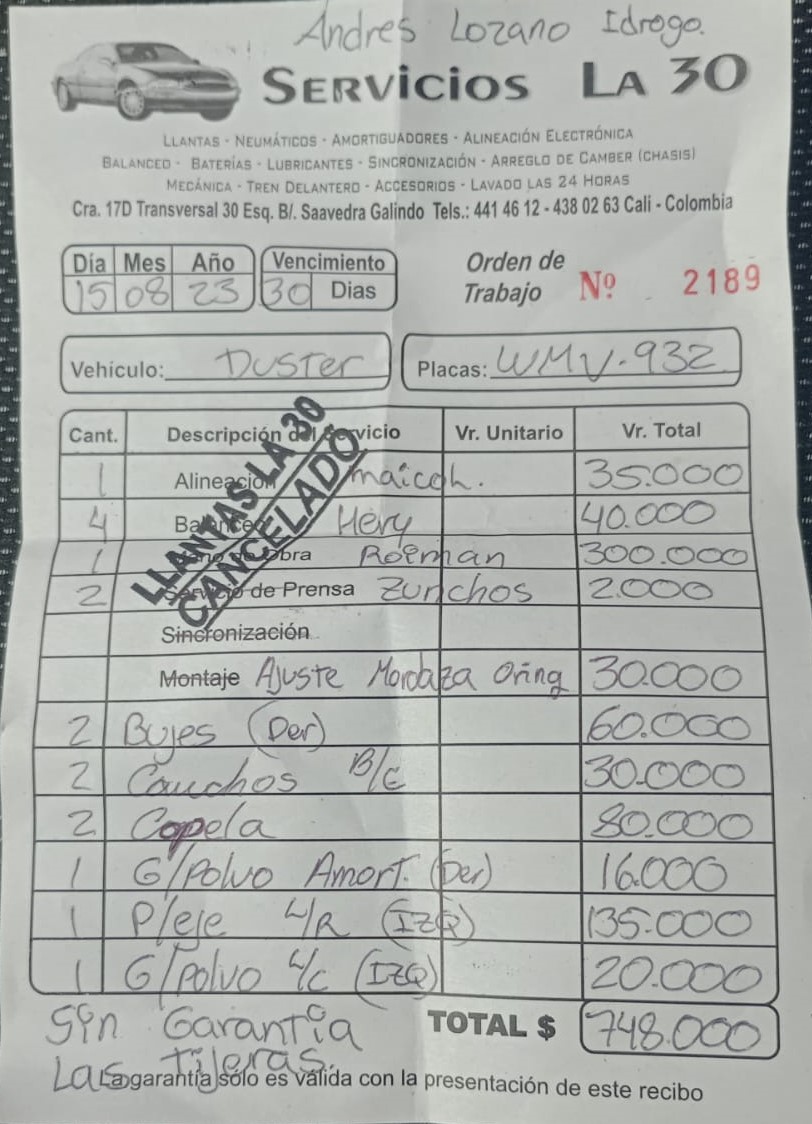 Andres Lozano Idrogo.
SERVICIOS LA 30
LLANTAS - NEUMÁTICOS - AMORTIGUADORES - ALINEACIÓN ELECTRÓNICA
BALANCEO - BATERÍAS - LUBRICANTES - SINCRONIZACIÓN - ARREGLO DE CAMBER (CHASIS)
MECÁNICA - TREN DELANTERO - ACCESORIOS - LAVADO LAS 24 HORAS
Cra. 17D Transversal 30 Esq. B/. Saavedra Galindo Tels.: 441 46 12 - 438 02 63 Cali - Colombia
Día Mes Año Vencimiento Orden de
15 08 23 30 Dias Trabajo Nº 2189
Vehículo: DUSTER Placas: WMV-932
Cant. Descripción del Servicio Vr. Unitario Vr. Total
1 Alineación maicol. 35.000
4 Balanceo Hery 40.000
1 Mano de Obra Roiman 300.000
2 Servicio de Prensa Zunchos 2.000
Sincronización
Montaje Ajuste Mordaza Oring 30.000
2 Bujes (Der) 60.000
2 Cauchos B/C 30.000
2 Copela 80.000
1 G/Polvo Amort. (Der) 16.000
1 P/eje L/R (IZQ) 135.000
1 G/Polvo L/C (IZQ) 20.000
LLANTAS LA 30
CANCELADO
Sin Garantia TOTAL $ 748.000
Las Tijeras.
La garantía sólo es válida con la presentación de este recibo